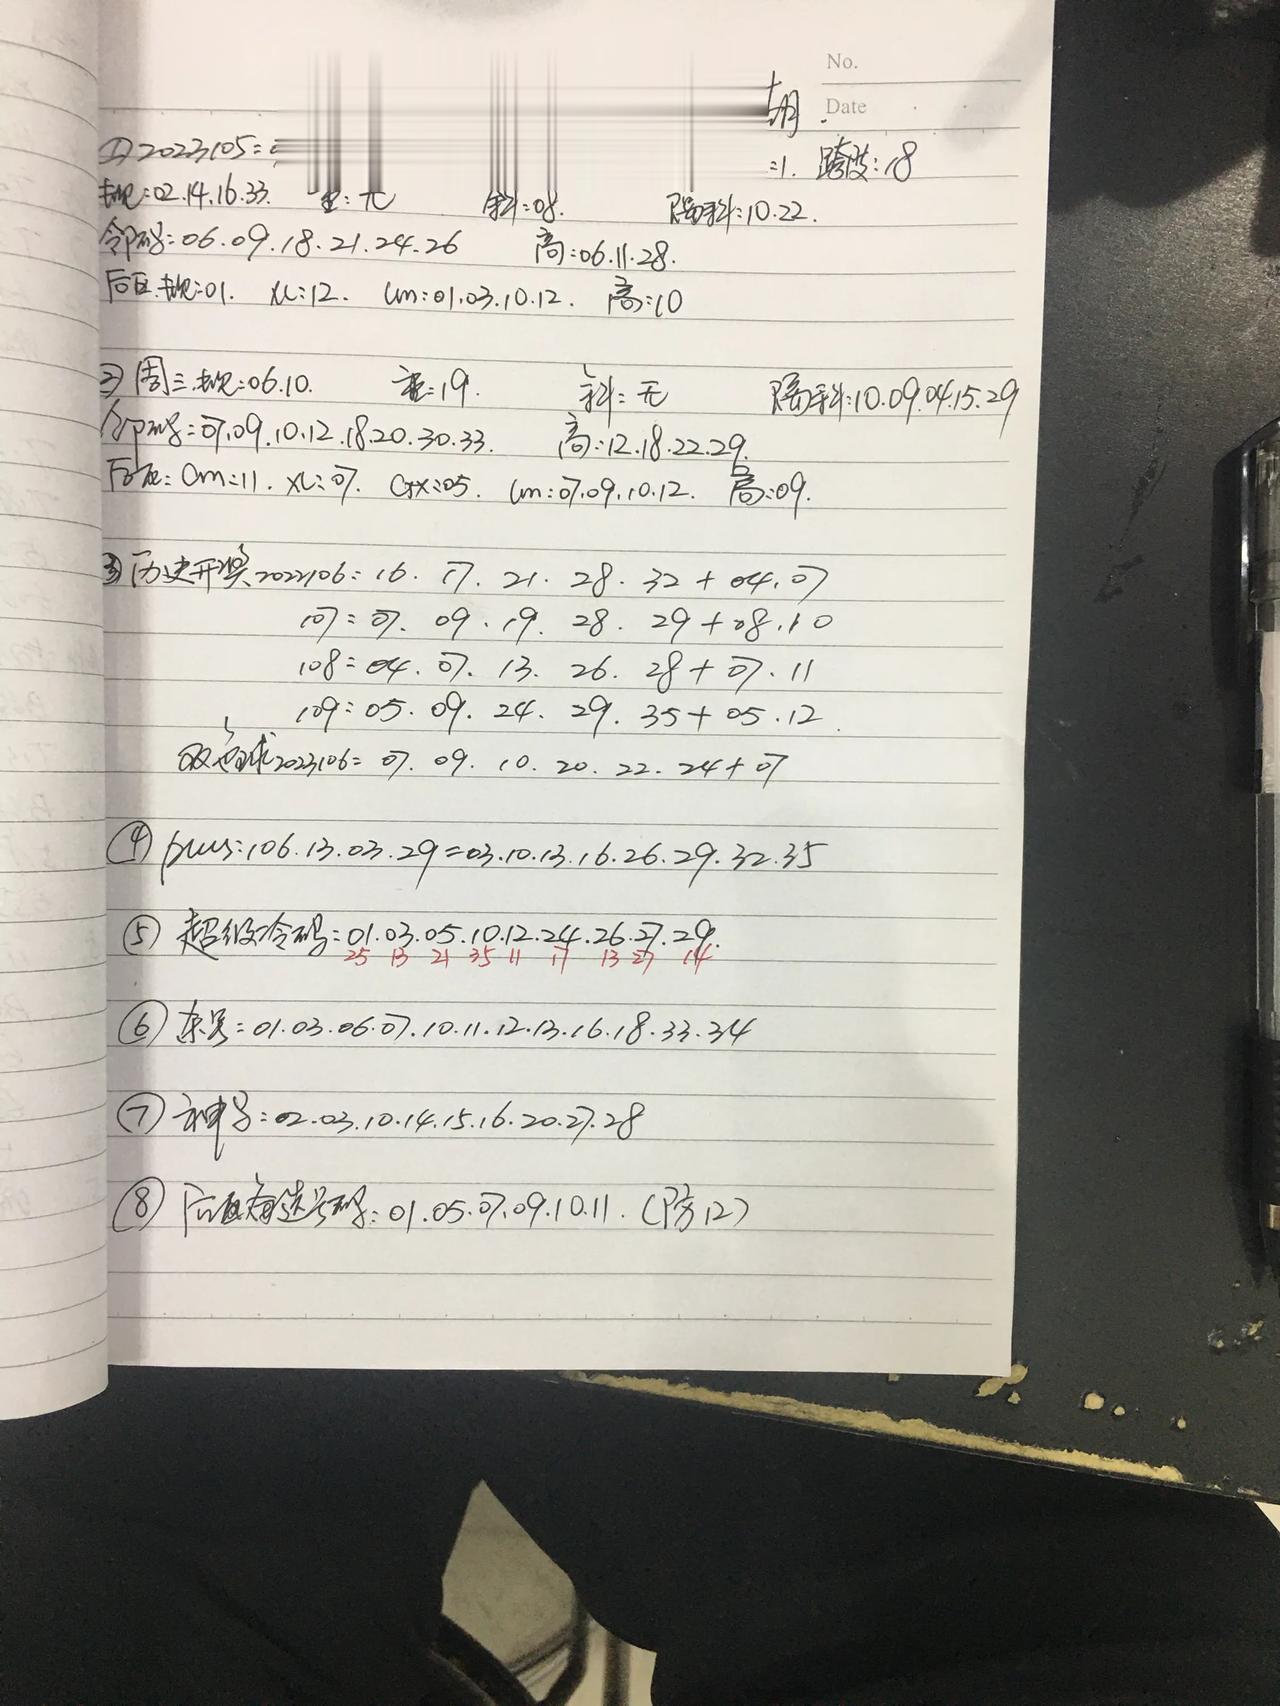 No.
Date
期
① 2023105=
=1. 跨度:18
规:02.14.16.33. 重:无 斜:08. 隔斜:10.22.
邻码:06.09.18.21.24.26 高:06.11.28.
后区.规:01. XL:12. Lm:01.03.10.12. 高:10
② 周三.规:06.10. 重:19. 斜:无 隔斜:10.09.04.15.29
邻码:07.09.10.12.18.20.30.33. 高:12.18.22.29.
后区:Cm:11. XL:07. GX:05. Lm:07.09.10.12. 高:09.
③ 历史开奖2022106=16.17.21.28.32+04.07
107=07.09.19.28.29+08.10
108=04.07.13.26.28+07.11
109=05.09.24.29.35+05.12.
双色球2023106=07.09.10.20.22.24+07
④ :106.13.03.29=03.10.13.16.26.29.32.35
⑤ 超级冷码:01.03.05.10.12.24.26.27.29.
25 13 21 35 11 17 13 27 14
⑥ 东号=01.03.06.07.10.11.12.13.16.18.33.34
⑦ 神号:02.03.10.14.15.16.20.27.28
⑧ 后区有选号码:01.05.07.09.10.11.(防12)